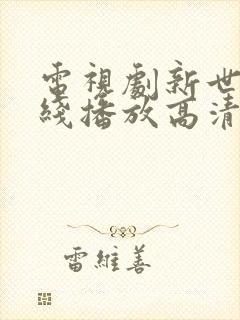 電視劇新世
綫播放高清
雷維善